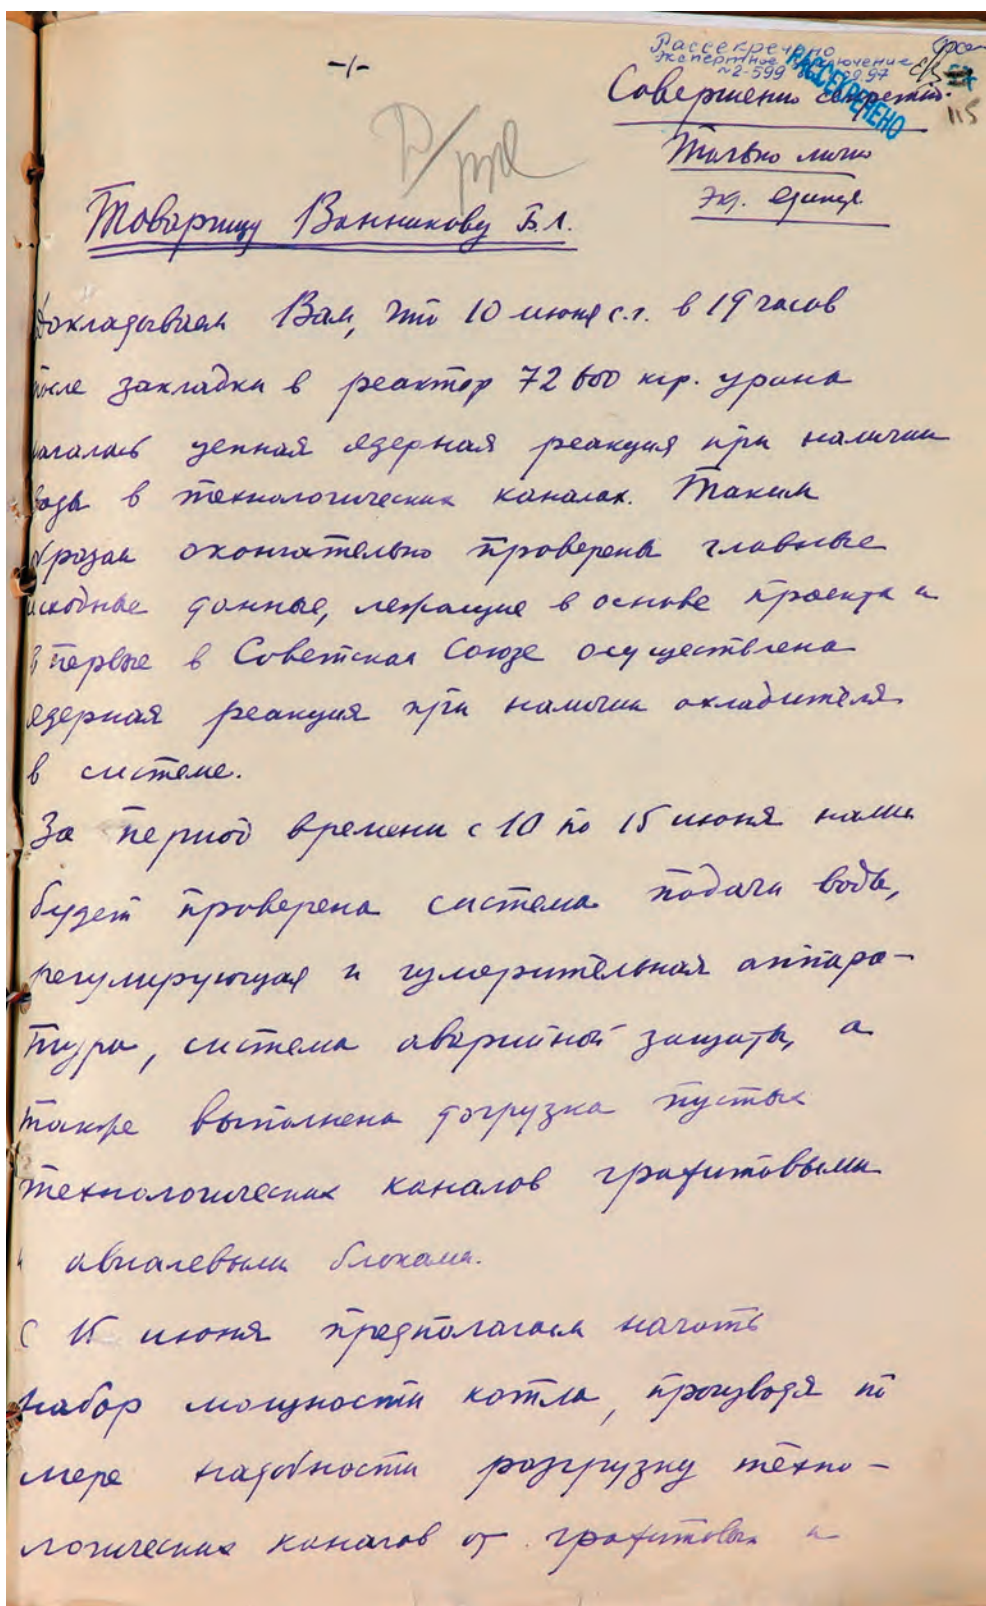 -1-
Рассекречено
Экспертное заключение
№2-599 09.97
РАССЕКРЕЧЕНО
Совершенно секретно.
115
Только лично
Экз. единств.
Товарищу Ванникову Б.Л.
Докладываем Вам, что 10 июня с.г. в 19 часов
после закладки в реактор 72600 кгр. урана
началась цепная ядерная реакция при наличии
воды в технологических каналах. Таким
образом окончательно проверены главные
исходные данные, лежащие в основе проекта и
впервые в Советском Союзе осуществлена
ядерная реакция при наличии охладителя
в системе.
За период времени с 10 по 15 июня нами
будет проверена система подачи воды,
регулирующая и измерительная аппара-
тура, система аварийной защиты, а
также выполнена догрузка пустых
технологических каналов графитовыми
и авиалевыми блоками.
С 15 июня предполагаем начать
набор мощности котла, производя по
мере надобности разгрузку техно-
логических каналов от графитовых и